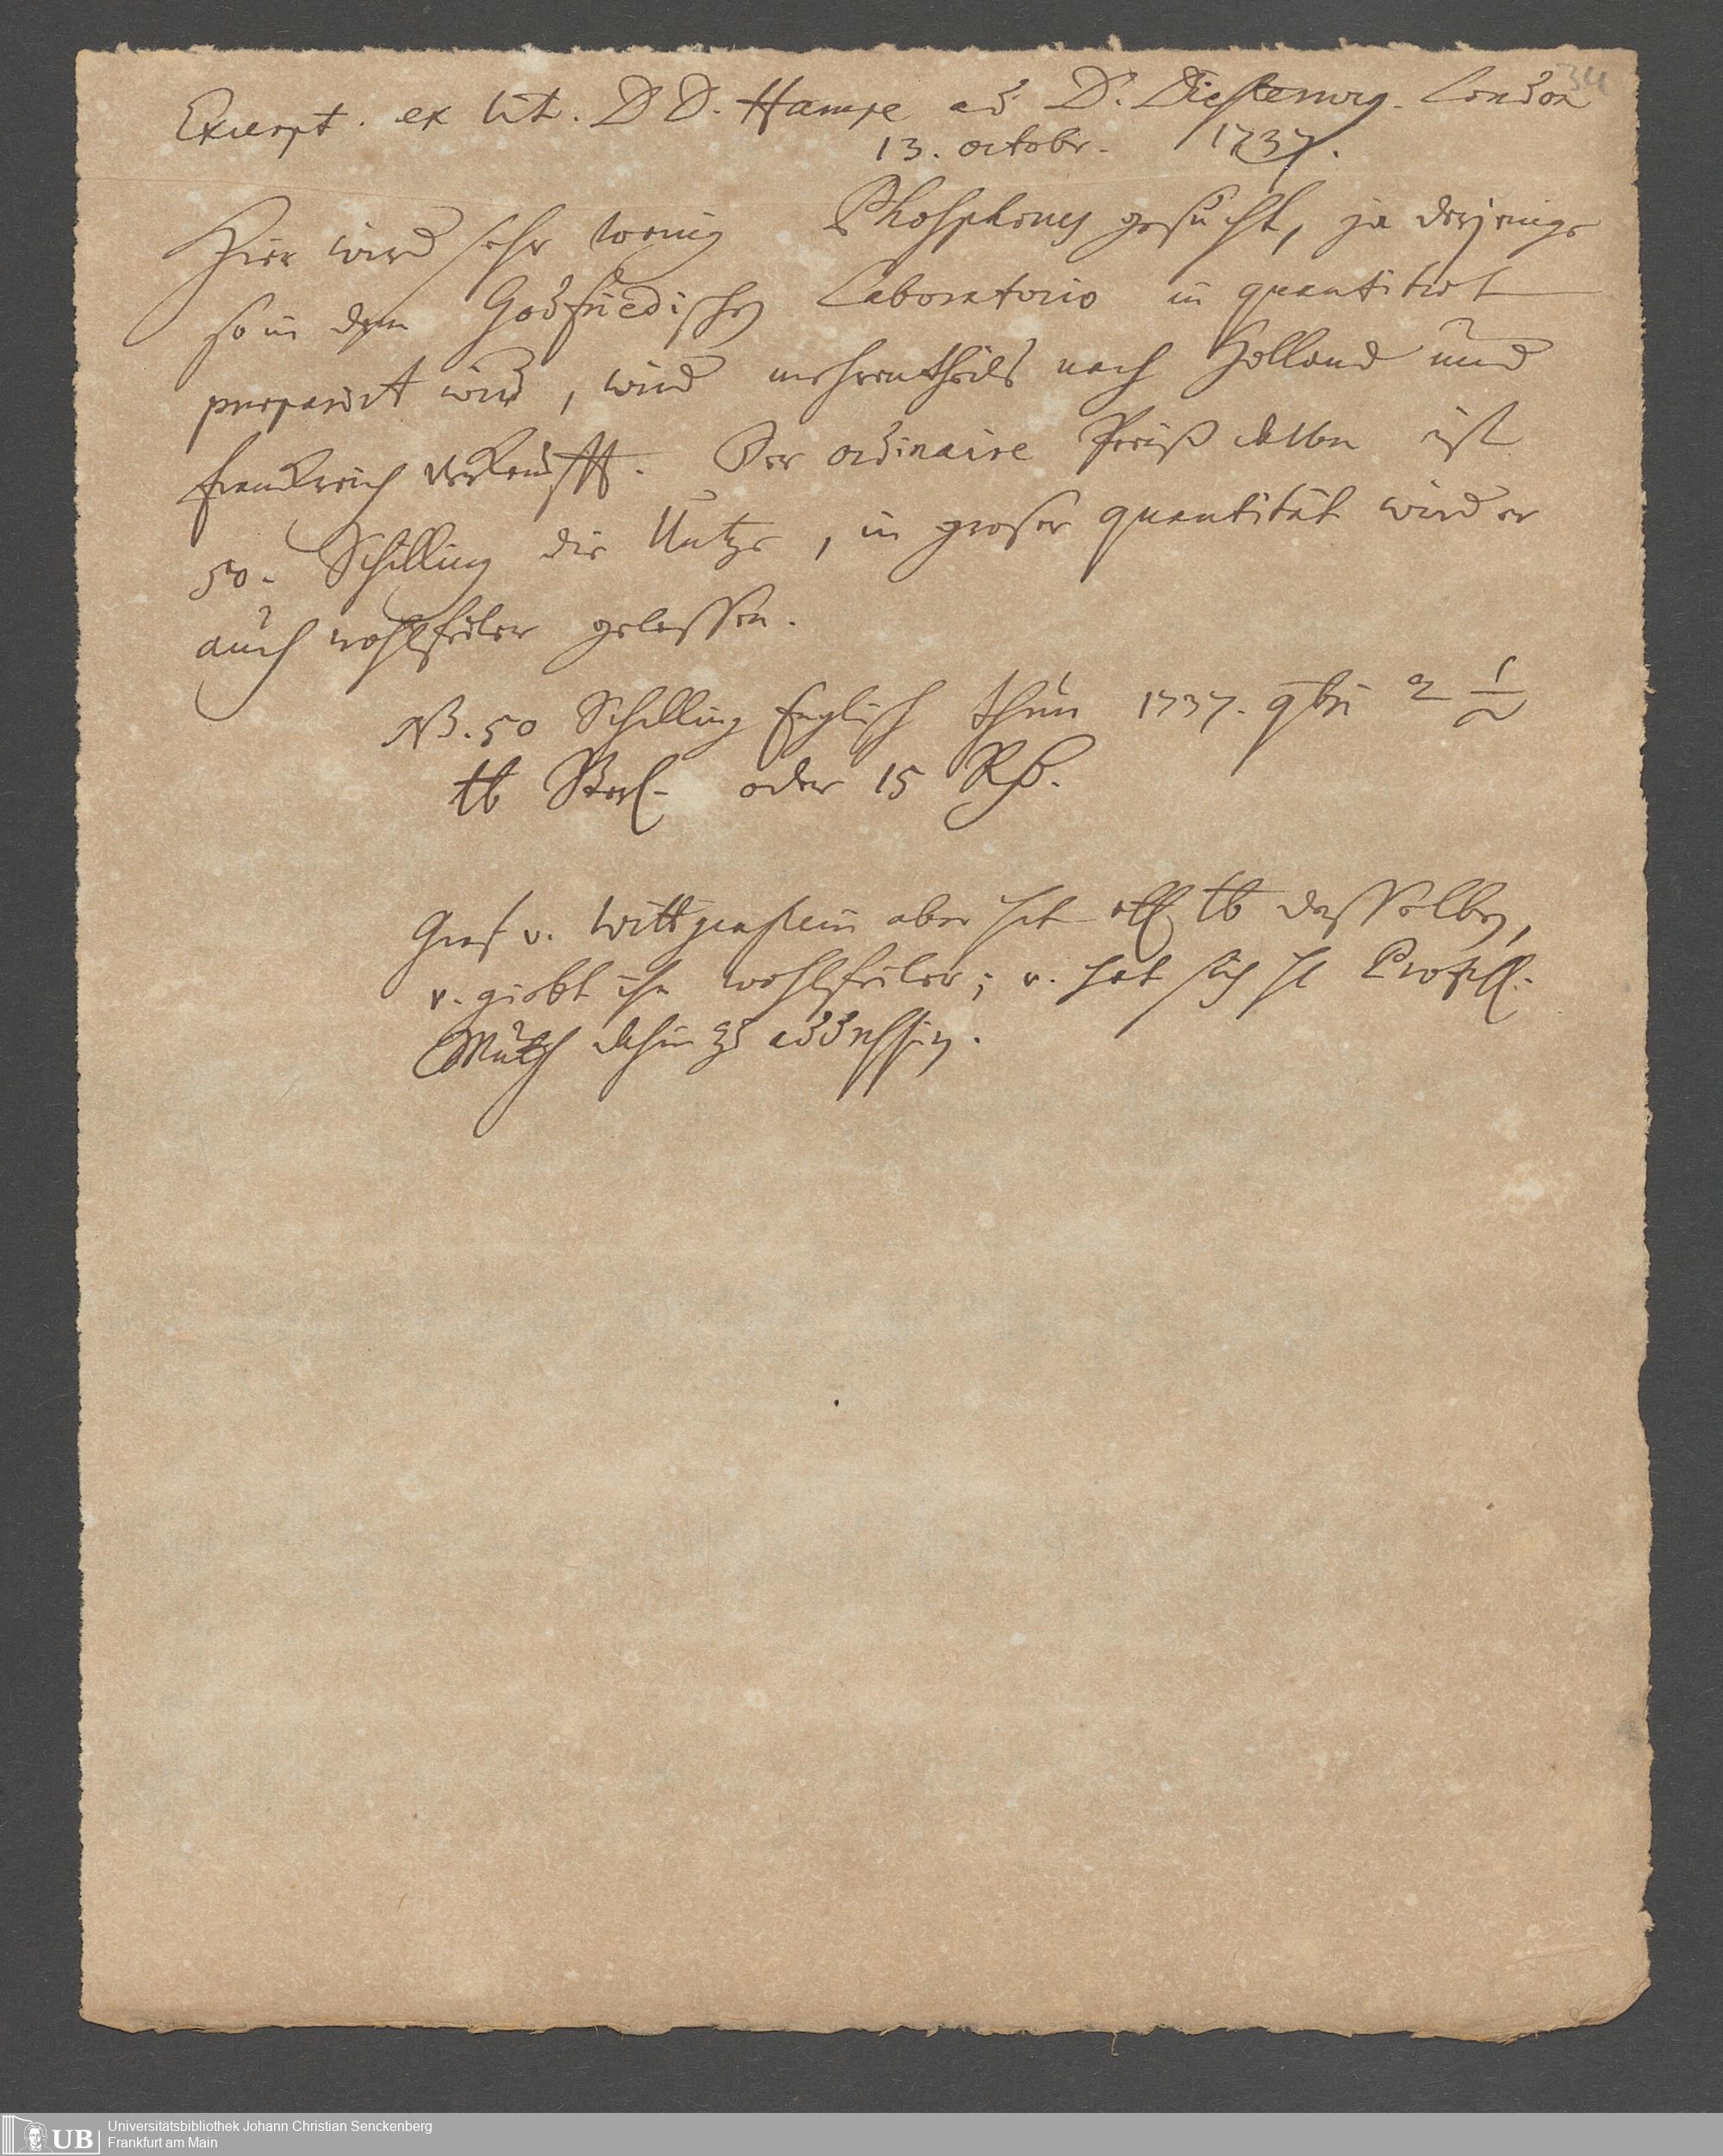 34
Excerpt. ex lit. D D. Hampe ad D. Diesterweg. London
13. octobr. 1737.
Hier wird sehr wenig Phosphorus gesucht, ja derjenige
so in dem Godfriedischen Laboratorio in quantitaet
praeparirt wird, wird mehrentheils nach Holland und
Franckreich verkaufft. Der ordinaire Preiß deßen ist
50. Schilling die Untze, in großer quantität wird er
auch wohlfeiler gelassen.
NB. 50 Schilling Englisch thun 1737. 9bri 2 1/2
lb Sterl. oder 15 Rh.
Graf v. Wittgenstein aber hat lb desselben,
v. giebt ihn wohlfeiler; v. hat sich H
dahin zu addressiren.
Universitätsbibliothek Johann Christian Senckenberg
Frankfurt am Main
UB